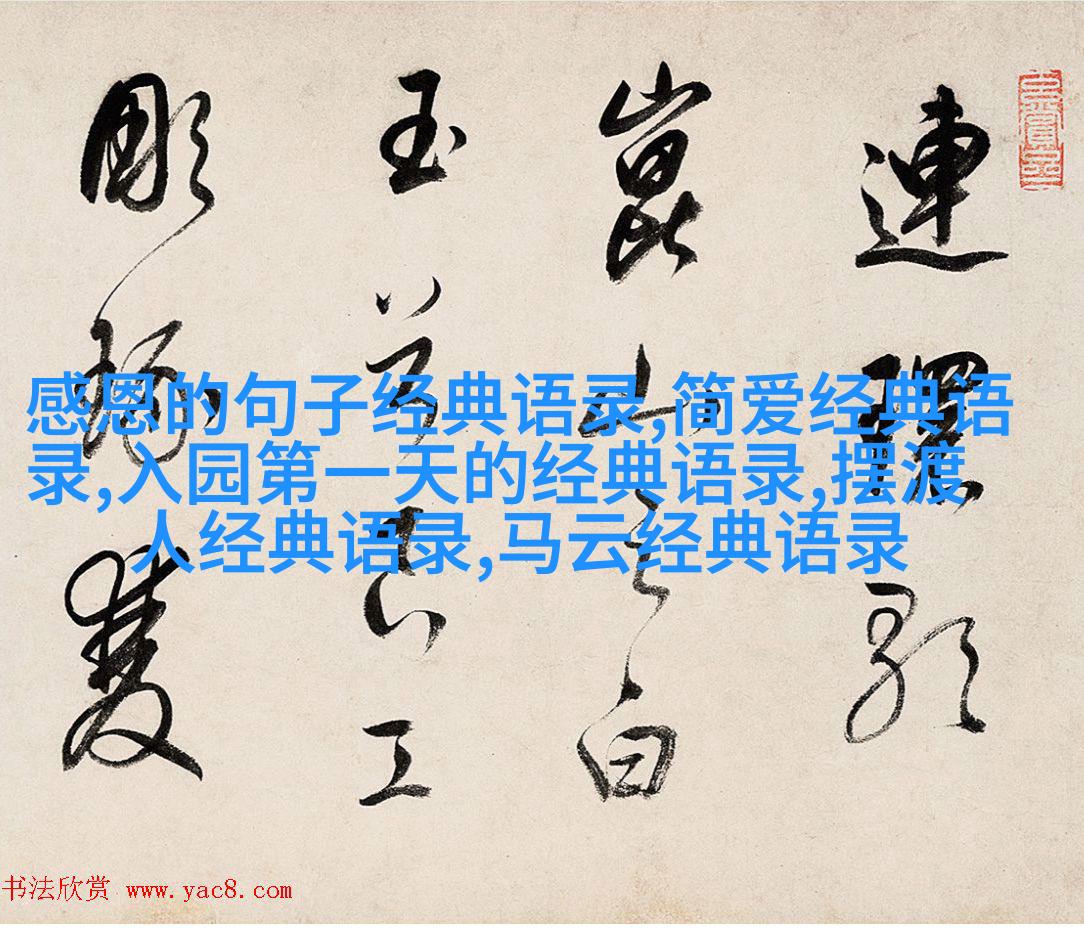 連環歌
崑山之白
玉兮良工
彫琢雙
感恩的句子经典语录,简爱经典语
录,入园第一天的经典语录,摆渡
人经典语录,马云经典语录
书法欣赏 www.yac8.com